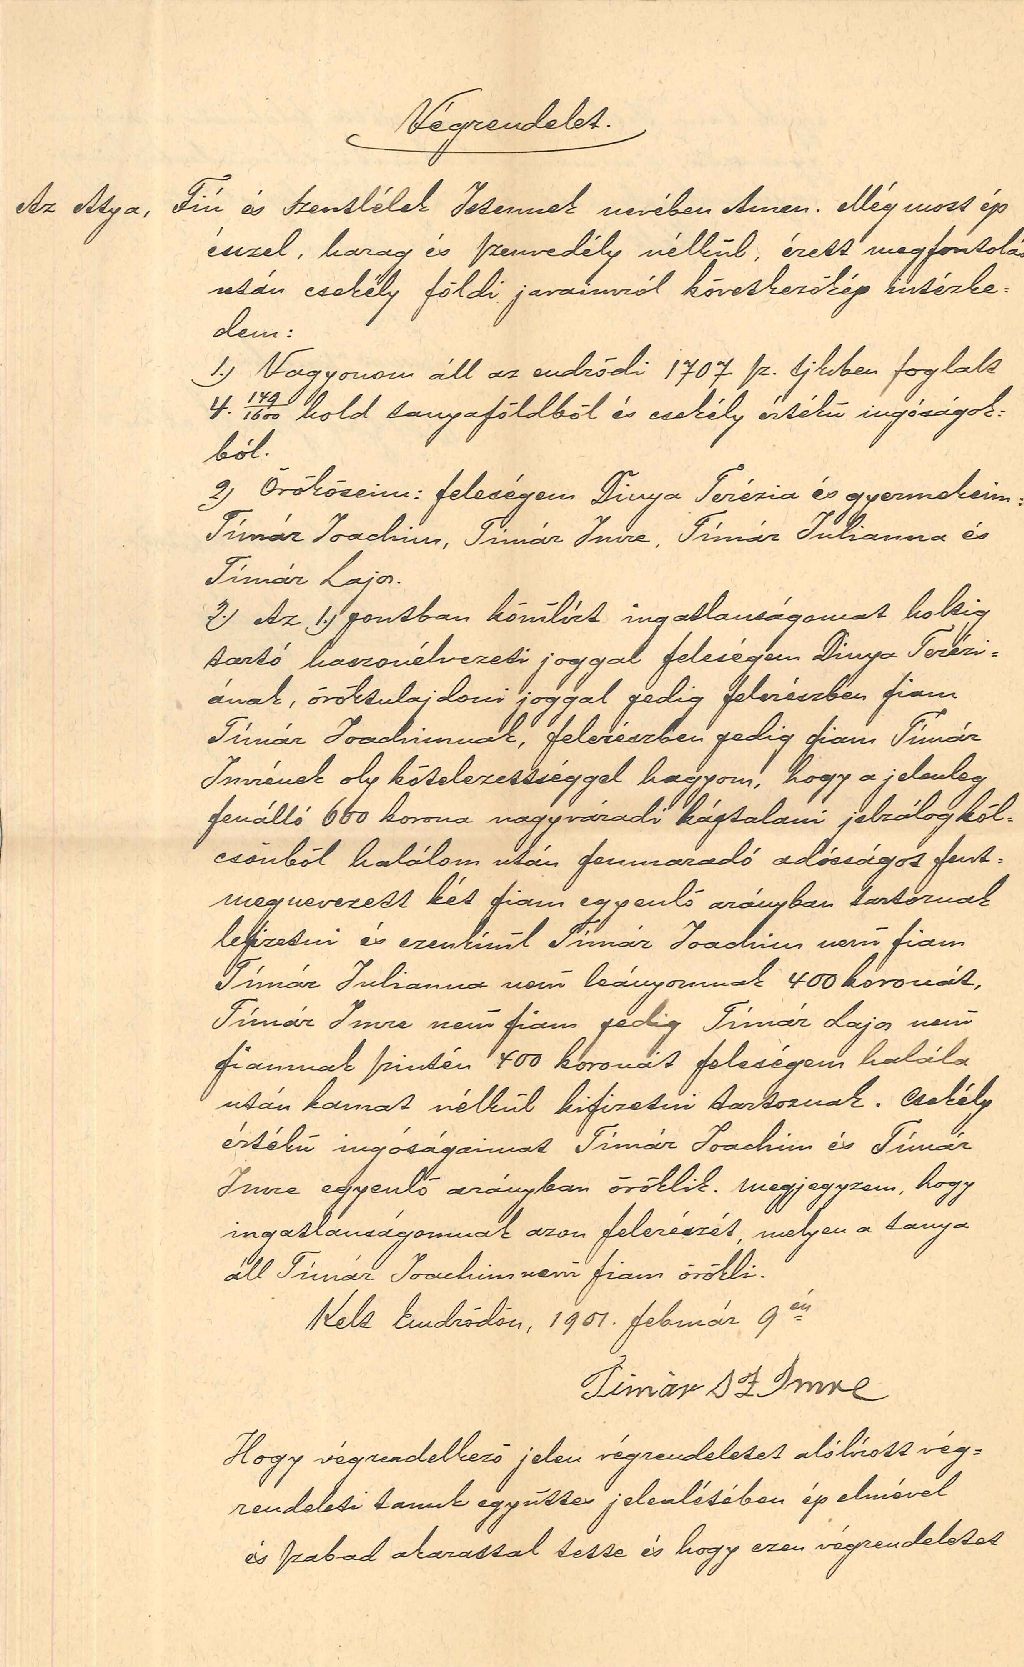 Végrendelet.
Az Atya, Fiú és Szentlélek Istennek nevében Amen. Még most ép
ésszel, harag és szenvedély nélkül, érett megfontolás
után csekély földi javaimról következőkép intézke-
dem:
1.) Vagyonom áll az endrődi 1707 sz. tjkvben foglalt
4. 149/1600 hold tanyaföldből és csekély értékü ingóságok-
ból.
2) Örököseim: feleségem Dinya Terézia és gyermekeim:
Tímár Joachim, Tímár Imre, Tímár Julianna és
Tímár Lajos.
3.) Az 1.) pontban körülírt ingatlanságomat holtig
tartó haszonélvezeti joggal feleségem Dinya Terézi-
ának, öröktulajdoni joggal pedig felerészben fiam
Tímár Joachimnak, felerészben pedig fiam Tímár
Imrének oly kötelezettséggel hagyom, hogy a jelenleg
fenálló 600 korona nagyváradi káptalani jelzálogköl-
csönből halálom után fennmaradó adósságot fent-
megnevezett két fiam egyenlő arányban tartoznak
lefizetni és ezenkivül Tímár Joachim nevü fiam
Tímár Julianna nevü leányomnak 400 koronát,
Tímár Imre nevü fiam pedig Tímár Lajos nevü
fiamnak szintén 400 koronát feleségem halála
után kamat nélkül kifizetni tartoznak. Csekély
értékü ingóságaimat Tímár Joachim és Tímár
Imre egyenlő arányban öröklik. Megjegyzem, hogy
ingatlanságomnak azon felerészét, melyen a tanya
áll Tímár Joachim nevü fiam örökli.
Kelt Endrődön, 1901. február 9 én
Tímár Imre
Hogy végrendelkező jelen végrendeletet alólírott vég-
rendeleti tanuk együttes jelenlétében ép elmével
és szabad akarattal tette és hogy ezen végrendeletet